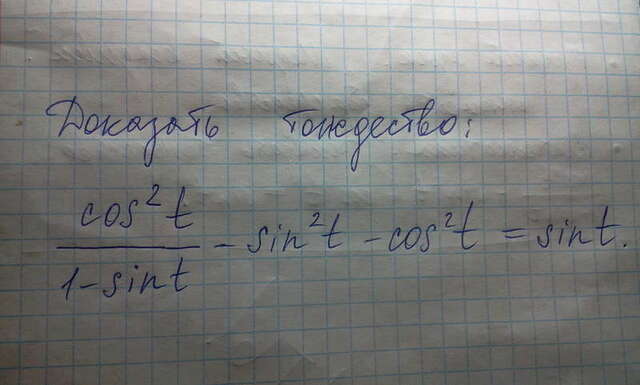 Доказать тождество:
cos²t / (1-sint) - sin²t - cos²t = sint.